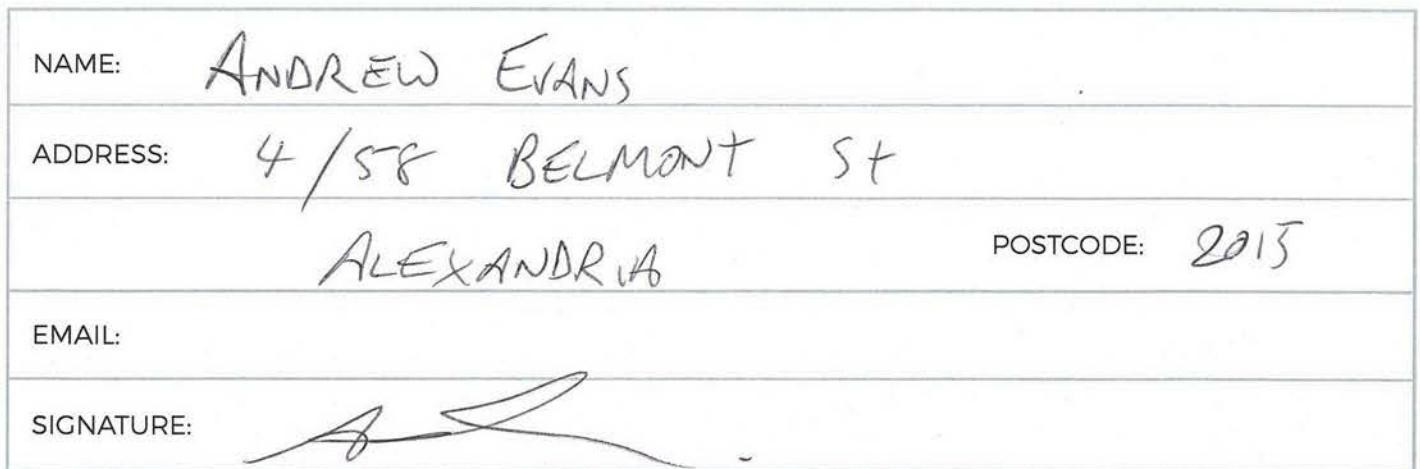 NAME: ANDREW EVANS
ADDRESS: 4/58 BELMONT St
ALEXANDRIA POSTCODE: 2015
EMAIL:
SIGNATURE: